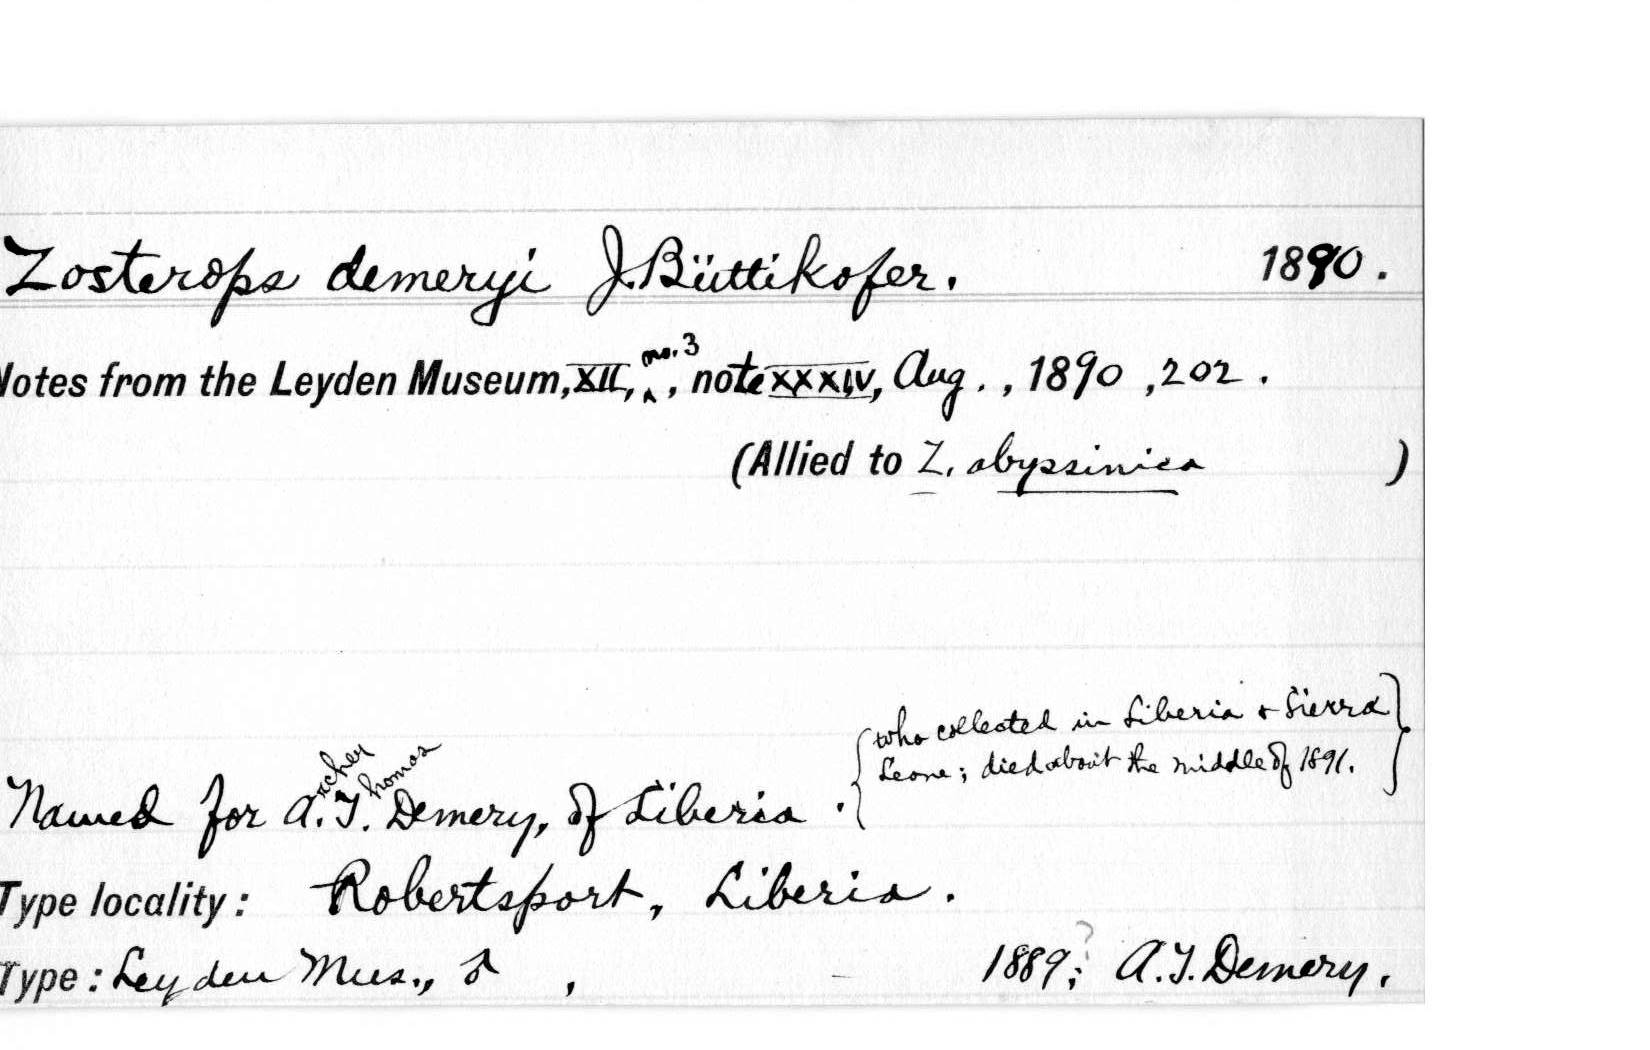 Zosterops demeryi J. Büttikofer. 1890.
Notes from the Leyden Museum, XII, no. 3, note XXXIV, Aug., 1890, 202.
(Allied to Z. abyssinica )
{who collected in Liberia & Sierra
Leone; died about the middle of 1891.}
Named for Archer Thomas Demery, of Liberia.
Type locality: Robertsport, Liberia.
Type: Leyden Mus., ♂ , 1889;? A.T. Demery.